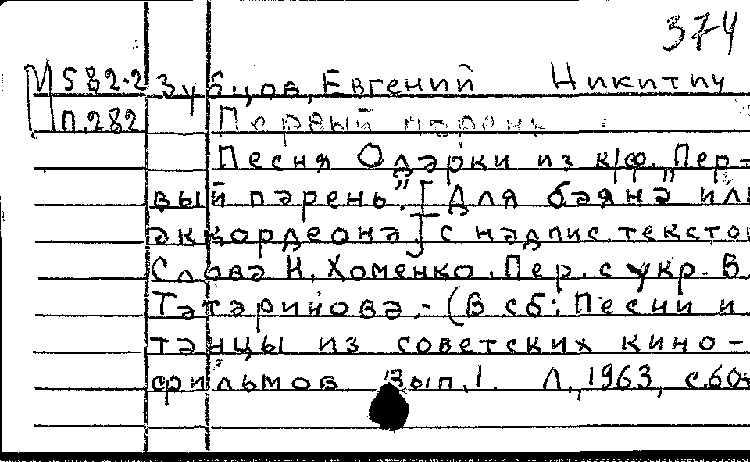 374
М582-2 Зубцов, Евгений Никитич
П.282 Первый парень
Песня Одарки из к/ф. „Пер-
вый парень". [Для баяна или
аккордеона] с надпис. текстом
Слова Н. Хоменко. Пер. с укр. В.
Татаринова.- (В сб: Песни и
танцы из советских кино-
фильмов Вып.1. Л., 1963, с.60-